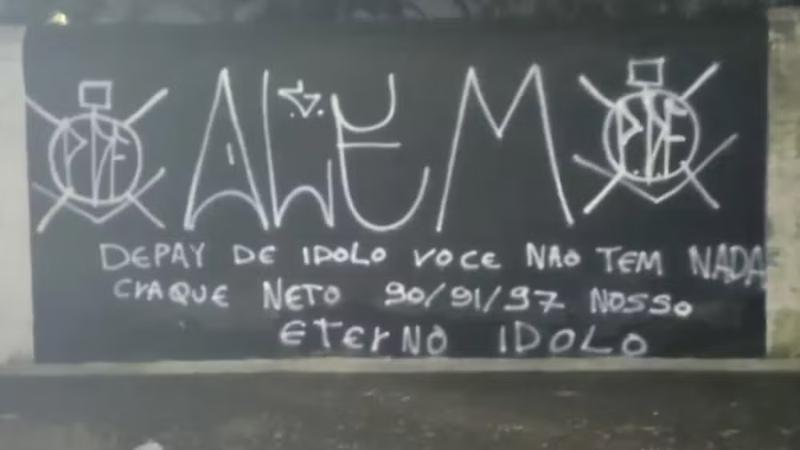 ALEM
DEPAY DE IDOLO VOCE NAO TEM NADA
CRAQUE NETO 90/91/97 NOSSO
ETERNO IDOLO